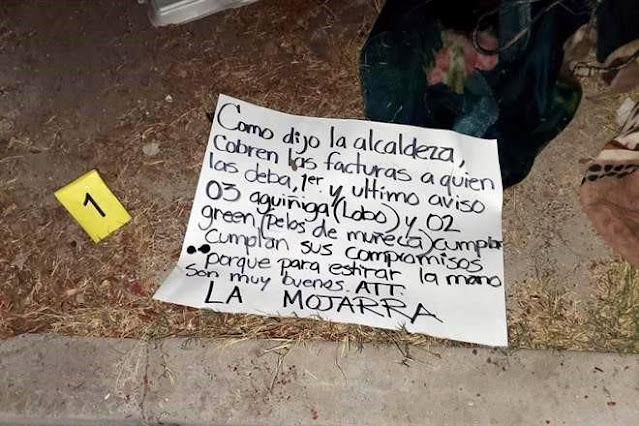 1
Como dijo la alcaldeza,
Cobren las facturas a quien
las deba, 1er. y ultimo aviso
03 aguiñiga (Lobo) y 02
green (pelos de muñeca) cumplan
cumplan sus compromisos
porque para estirar la mano
son muy buenos. ATT.
LA MOJARRA